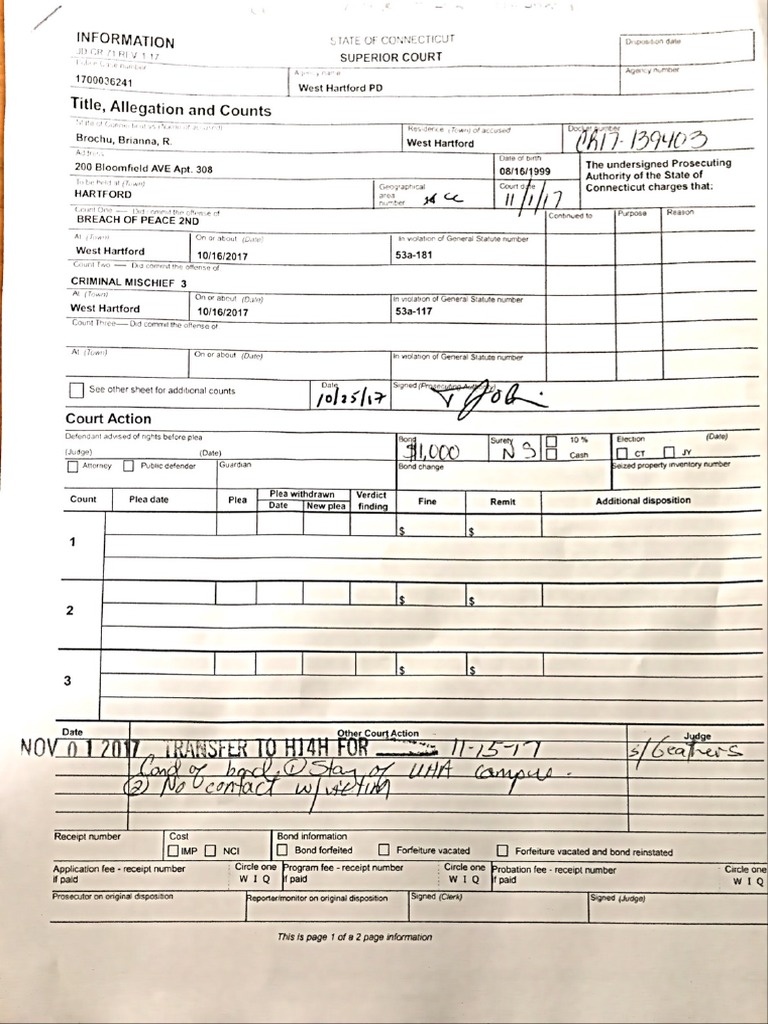 INFORMATION
JD-CR-71 REV. 1-17
STATE OF CONNECTICUT
SUPERIOR COURT
Disposition date
Police Case number
1700036241
Agency name
West Hartford PD
Agency number
Title, Allegation and Counts
State of Connecticut vs (Name of accused)
Brochu, Brianna, R.
Residence (Town) of accused
West Hartford
Docket number
CR17-139403
Address
200 Bloomfield AVE Apt. 308
Date of birth
08/16/1999
The undersigned Prosecuting
Authority of the State of
Connecticut charges that:
To be held at (Town)
HARTFORD
Geographical
area
number
Court date
11/1/17
Count One — Did commit the offense of
BREACH OF PEACE 2ND
Continued to
Purpose
Reason
At (Town)
West Hartford
On or about (Date)
10/16/2017
In violation of General Statute number
53a-181
Count Two — Did commit the offense of
CRIMINAL MISCHIEF 3
At (Town)
West Hartford
On or about (Date)
10/16/2017
In violation of General Statute number
53a-117
Count Three — Did commit the offense of
At (Town)
On or about (Date)
In violation of General Statute number
See other sheet for additional counts
Date
10/25/17
Signed (Prosecuting Authority)
Court Action
Defendant advised of rights before plea
(Judge) (Date)
Bond
$1,000
Surety
NS
10 %
Cash
Election (Date)
CT JY
Attorney Public defender
Guardian
Bond change
Seized property inventory number
Count Plea date Plea Plea withdrawn Verdict finding Fine Remit Additional disposition
Date New plea
1 $ $
2 $ $
3 $ $
Date Other Court Action Judge
NOV 01 2017 TRANSFER TO H14H FOR 11-15-17 s/Geathers
Cond of bond ① Stay of UHA campus.
② No contact w/victim
Receipt number
Cost
IMP NCI
Bond information
Bond forfeited Forfeiture vacated Forfeiture vacated and bond reinstated
Application fee - receipt number
if paid
Circle one
W I Q
Program fee - receipt number
if paid
Circle one
W I Q
Probation fee - receipt number
if paid
Circle one
W I Q
Prosecutor on original disposition
Reporter/monitor on original disposition
Signed (Clerk)
Signed (Judge)
This is page 1 of a 2 page information